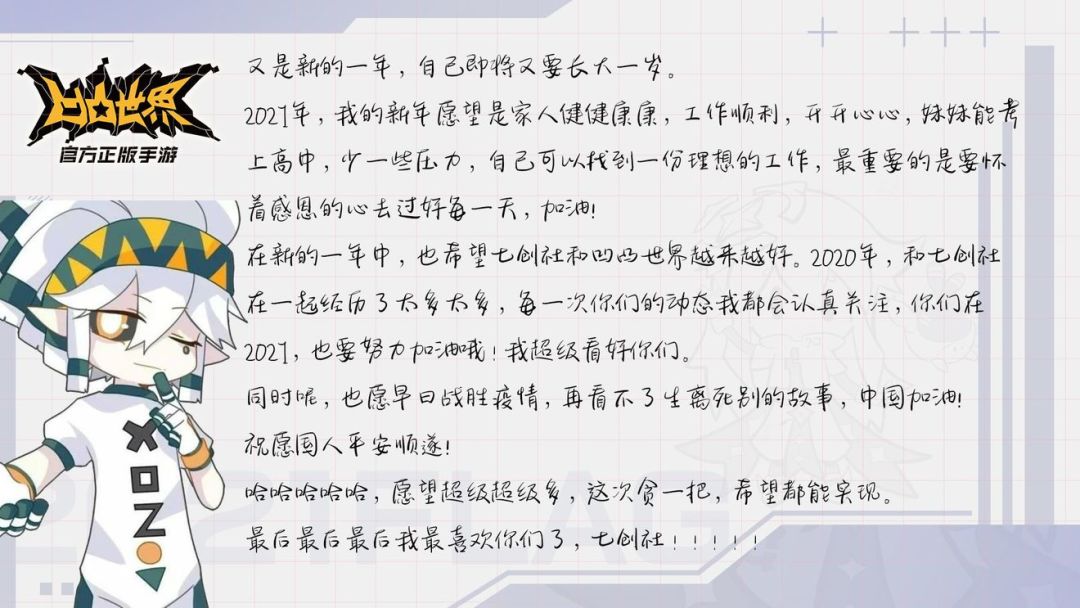 凹凸世界
官方正版手游
又是新的一年，自己即将又要长大一岁。
2021年，我的新年愿望是家人健健康康，工作顺利，开开心心，妹妹能考
上高中，少一些压力，自己可以找到一份理想的工作，最重要的是要怀
着感恩的心去过好每一天，加油！
在新的一年中，也希望七创社和凹凸世界越来越好。2020年，和七创社
在一起经历了太多太多，每一次你们的动态我都会认真关注，你们在
2021，也要努力加油哦！我超级看好你们。
同时呢，也愿早日战胜疫情，再看不了生离死别的故事，中国加油！
祝愿国人平安顺遂！
哈哈哈哈哈，愿望超级超级多，这次贪一把，希望都能实现。
最后最后最后我最喜欢你们了，七创社！！！！！
2021FLAG